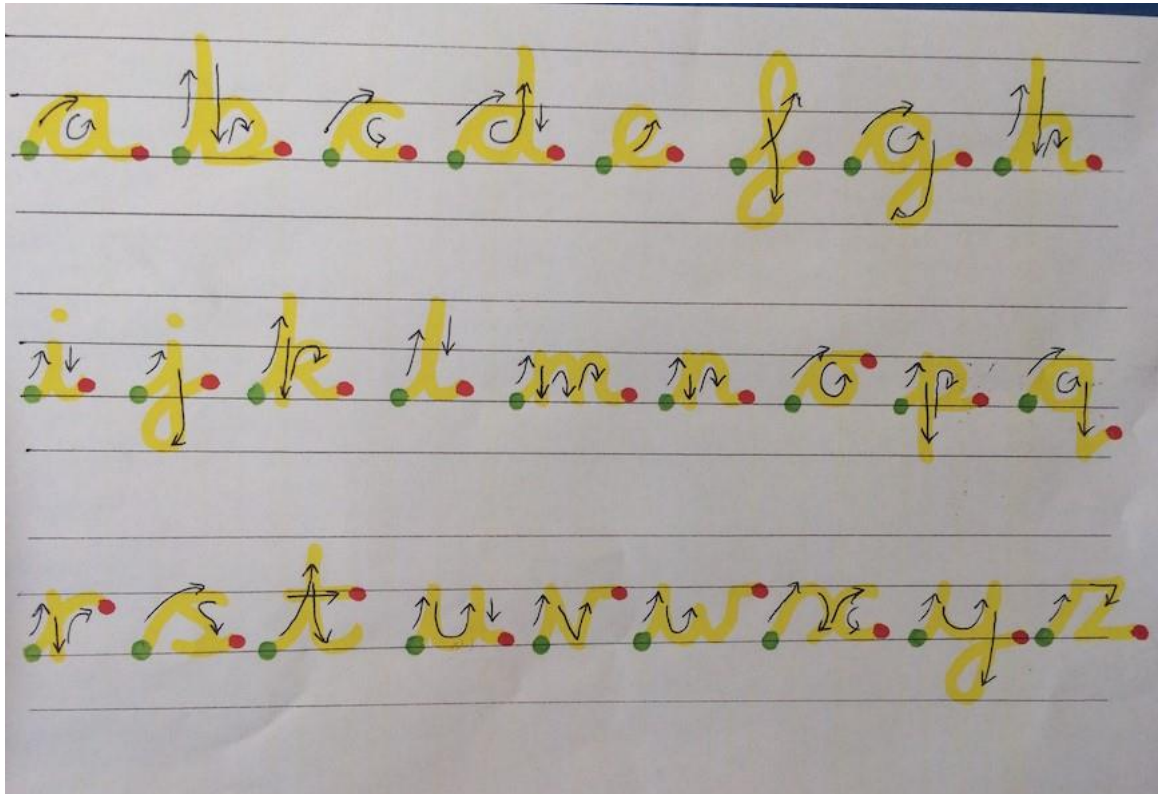 a b c d e f g h
i j k l m n o p q
r s t u v w x y z